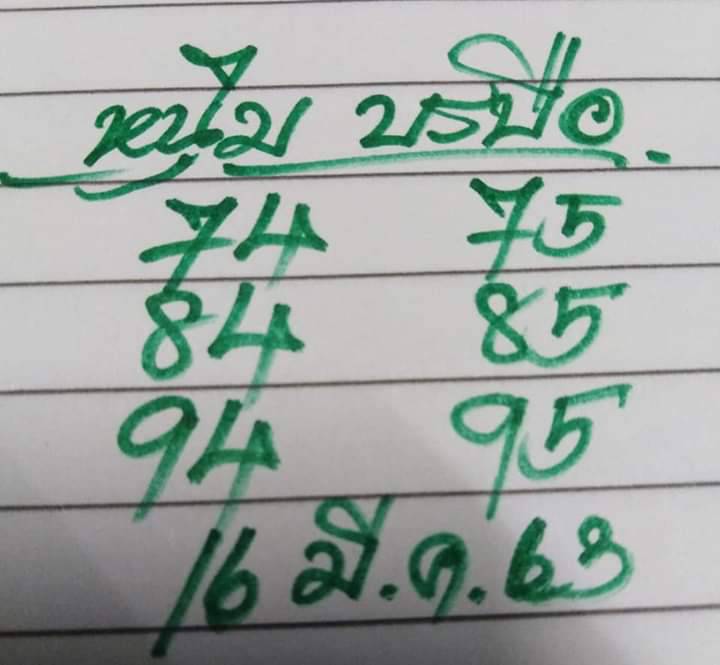 หนุ่ม บรบือ.
74 75
84 85
94 95
16 มี.ค. 63